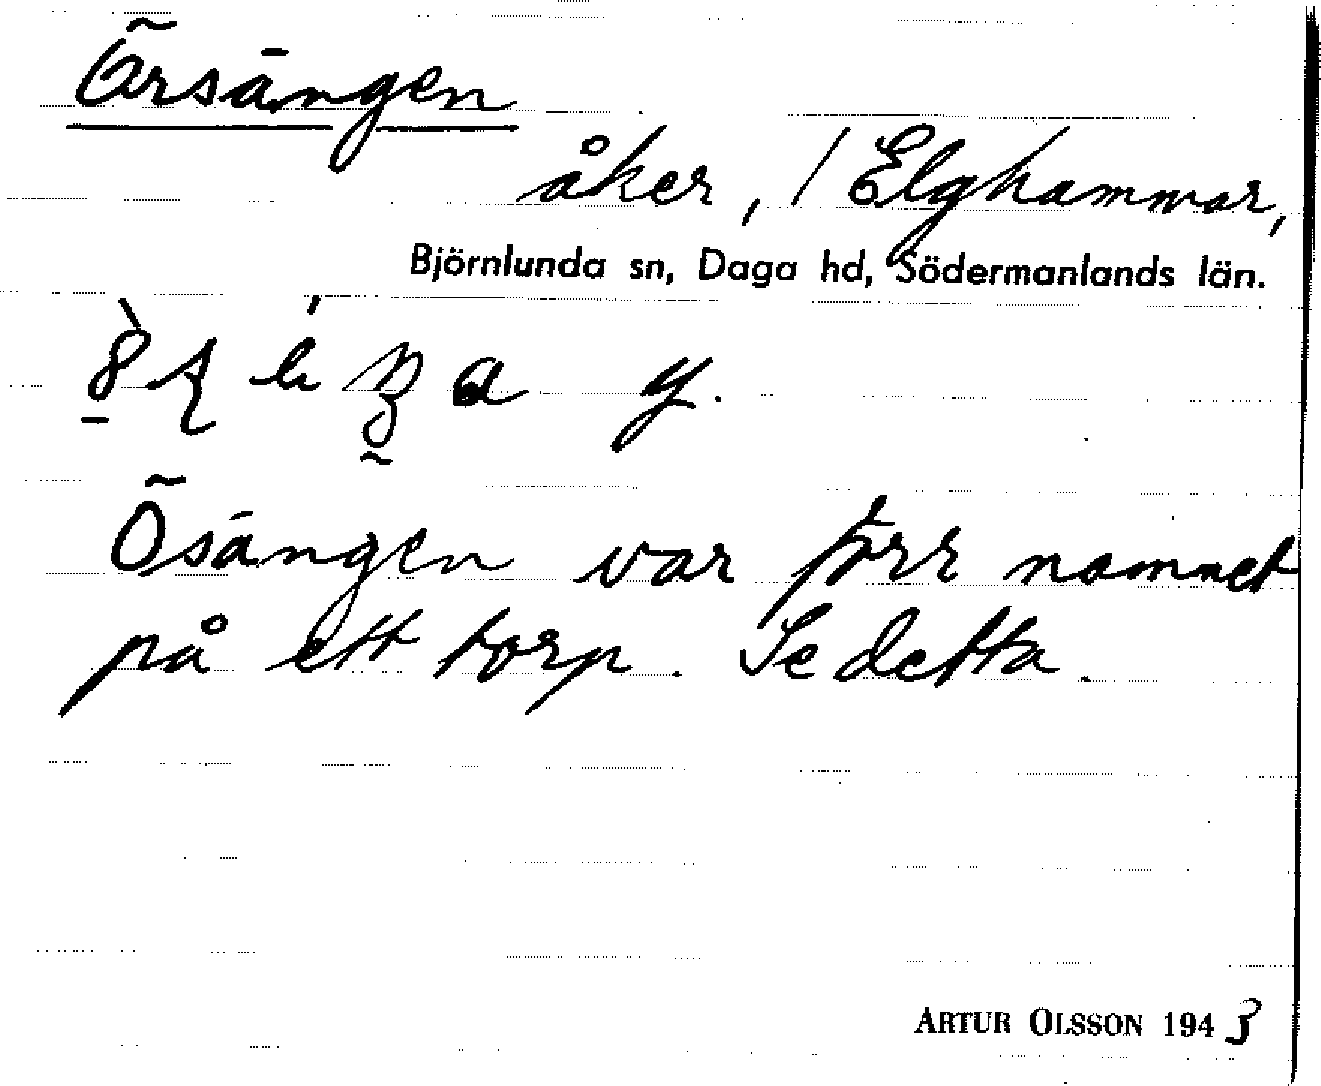 Örsängen
åker, / Elghammar,
Björnlunda sn, Daga hd, Södermanlands län.
Ösängen var förr namnet
på ett torp. Se detta.
ARTUR OLSSON 1943